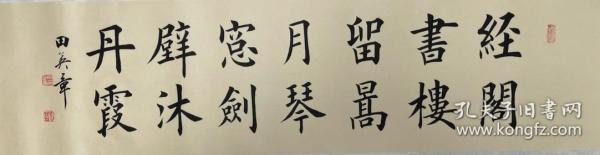 經閣
書樓
留暠
月琴
窓劍
壁沐
丹霞
田英章
孔夫子旧书网
www.kongfz.com